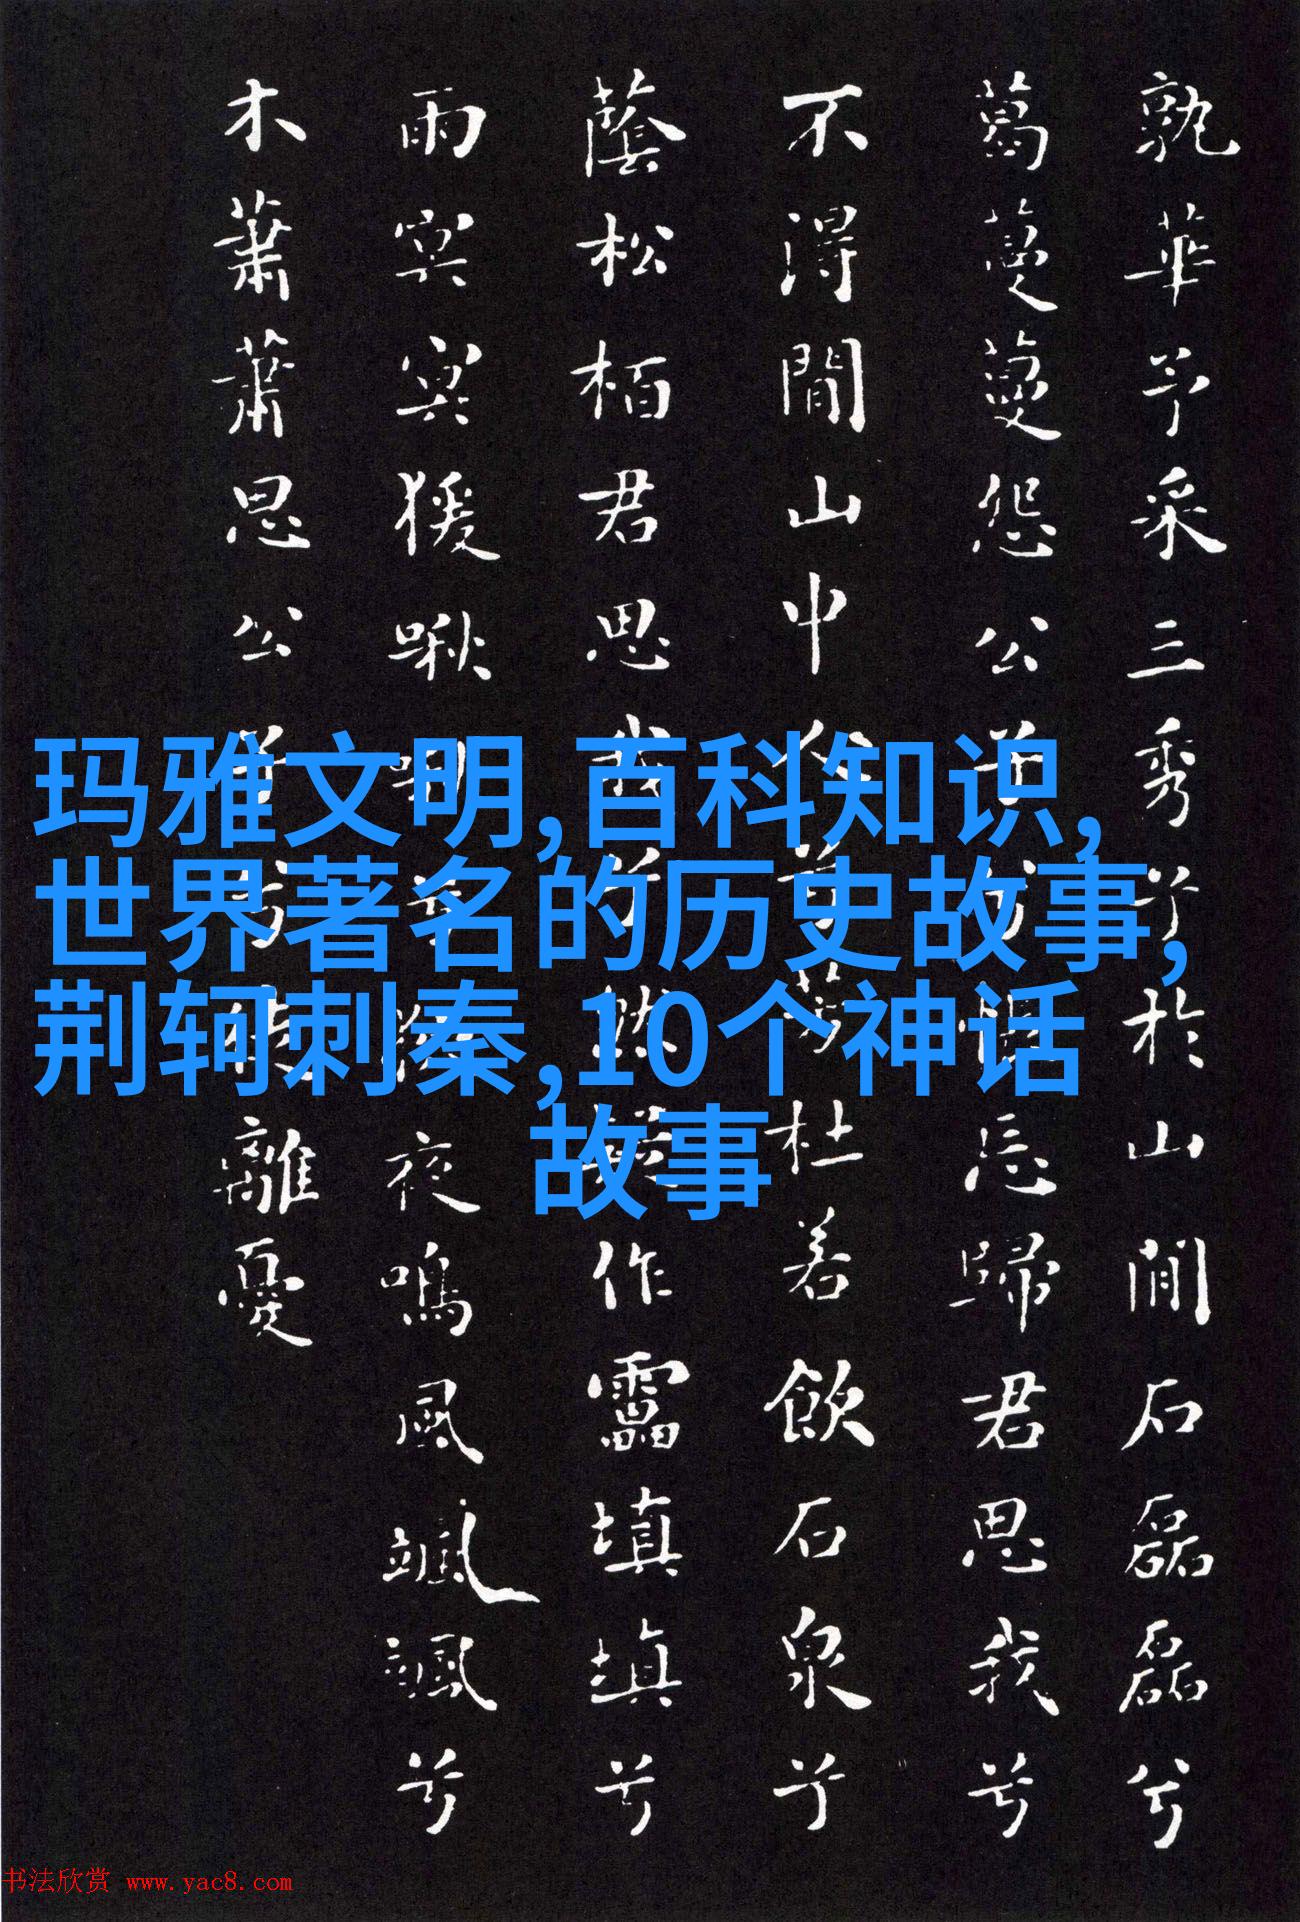 孰華予采三秀兮於山間石磊磊兮
葛蔓蔓怨公子兮悵忘歸君思我兮
不得間山中人兮芳杜若飲石泉兮
蔭松栢君思我兮然疑作靁填填兮
雨冥冥猨啾啾兮狖夜鳴風颯颯兮
木蕭蕭思公子兮徒離憂
玛雅文明,百科知识,
世界著名的历史故事,
荆轲刺秦,10个神话
故事
书法欣赏 www.yac8.com